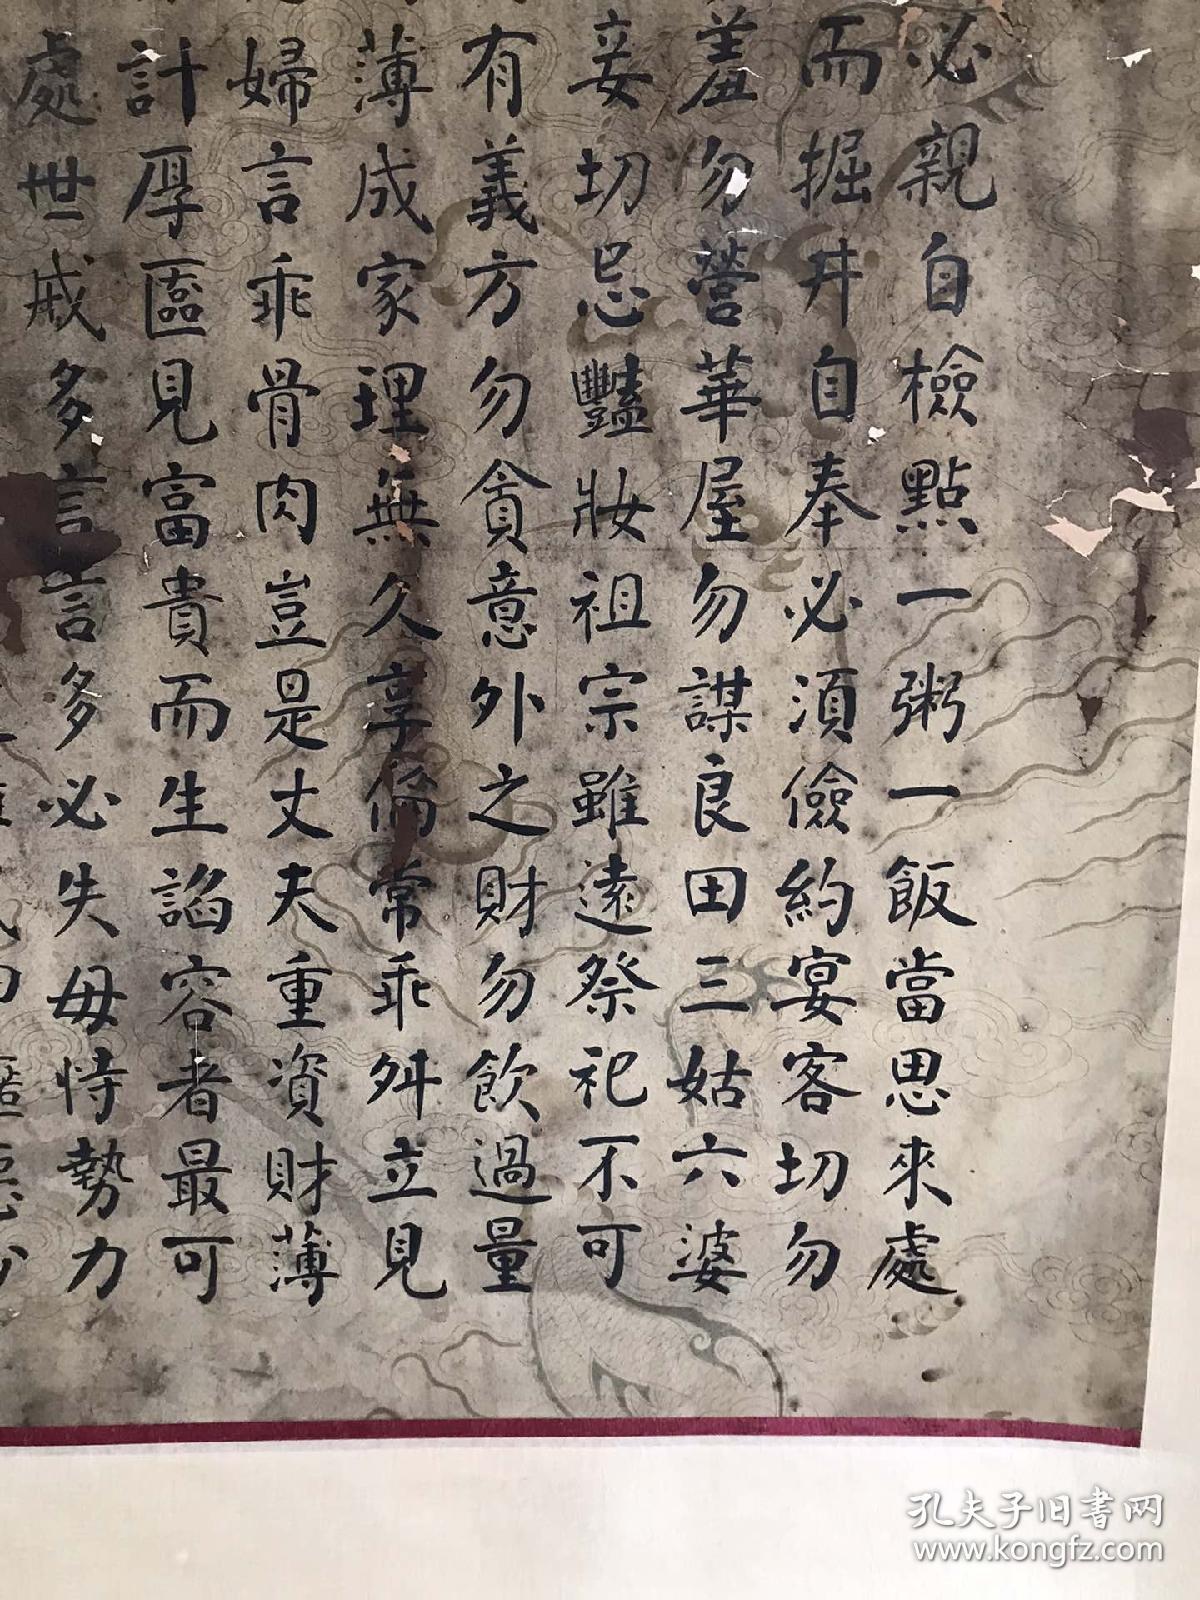 必親自檢點一粥一飯當思來處
而掘井自奉必須儉約宴客切勿
羞勿營華屋勿謀良田三姑六婆
妾切忌豔妝祖宗雖遠祭祀不可
有義方勿貪意外之財勿飲過量
薄成家理無久享倫常乖舛立見
婦言乖骨肉豈是丈夫重資財薄
計厚匳見富貴而生諂容者最可
處世戒多言言多必失毋恃勢力
孔夫子旧书网
www.kongfz.com